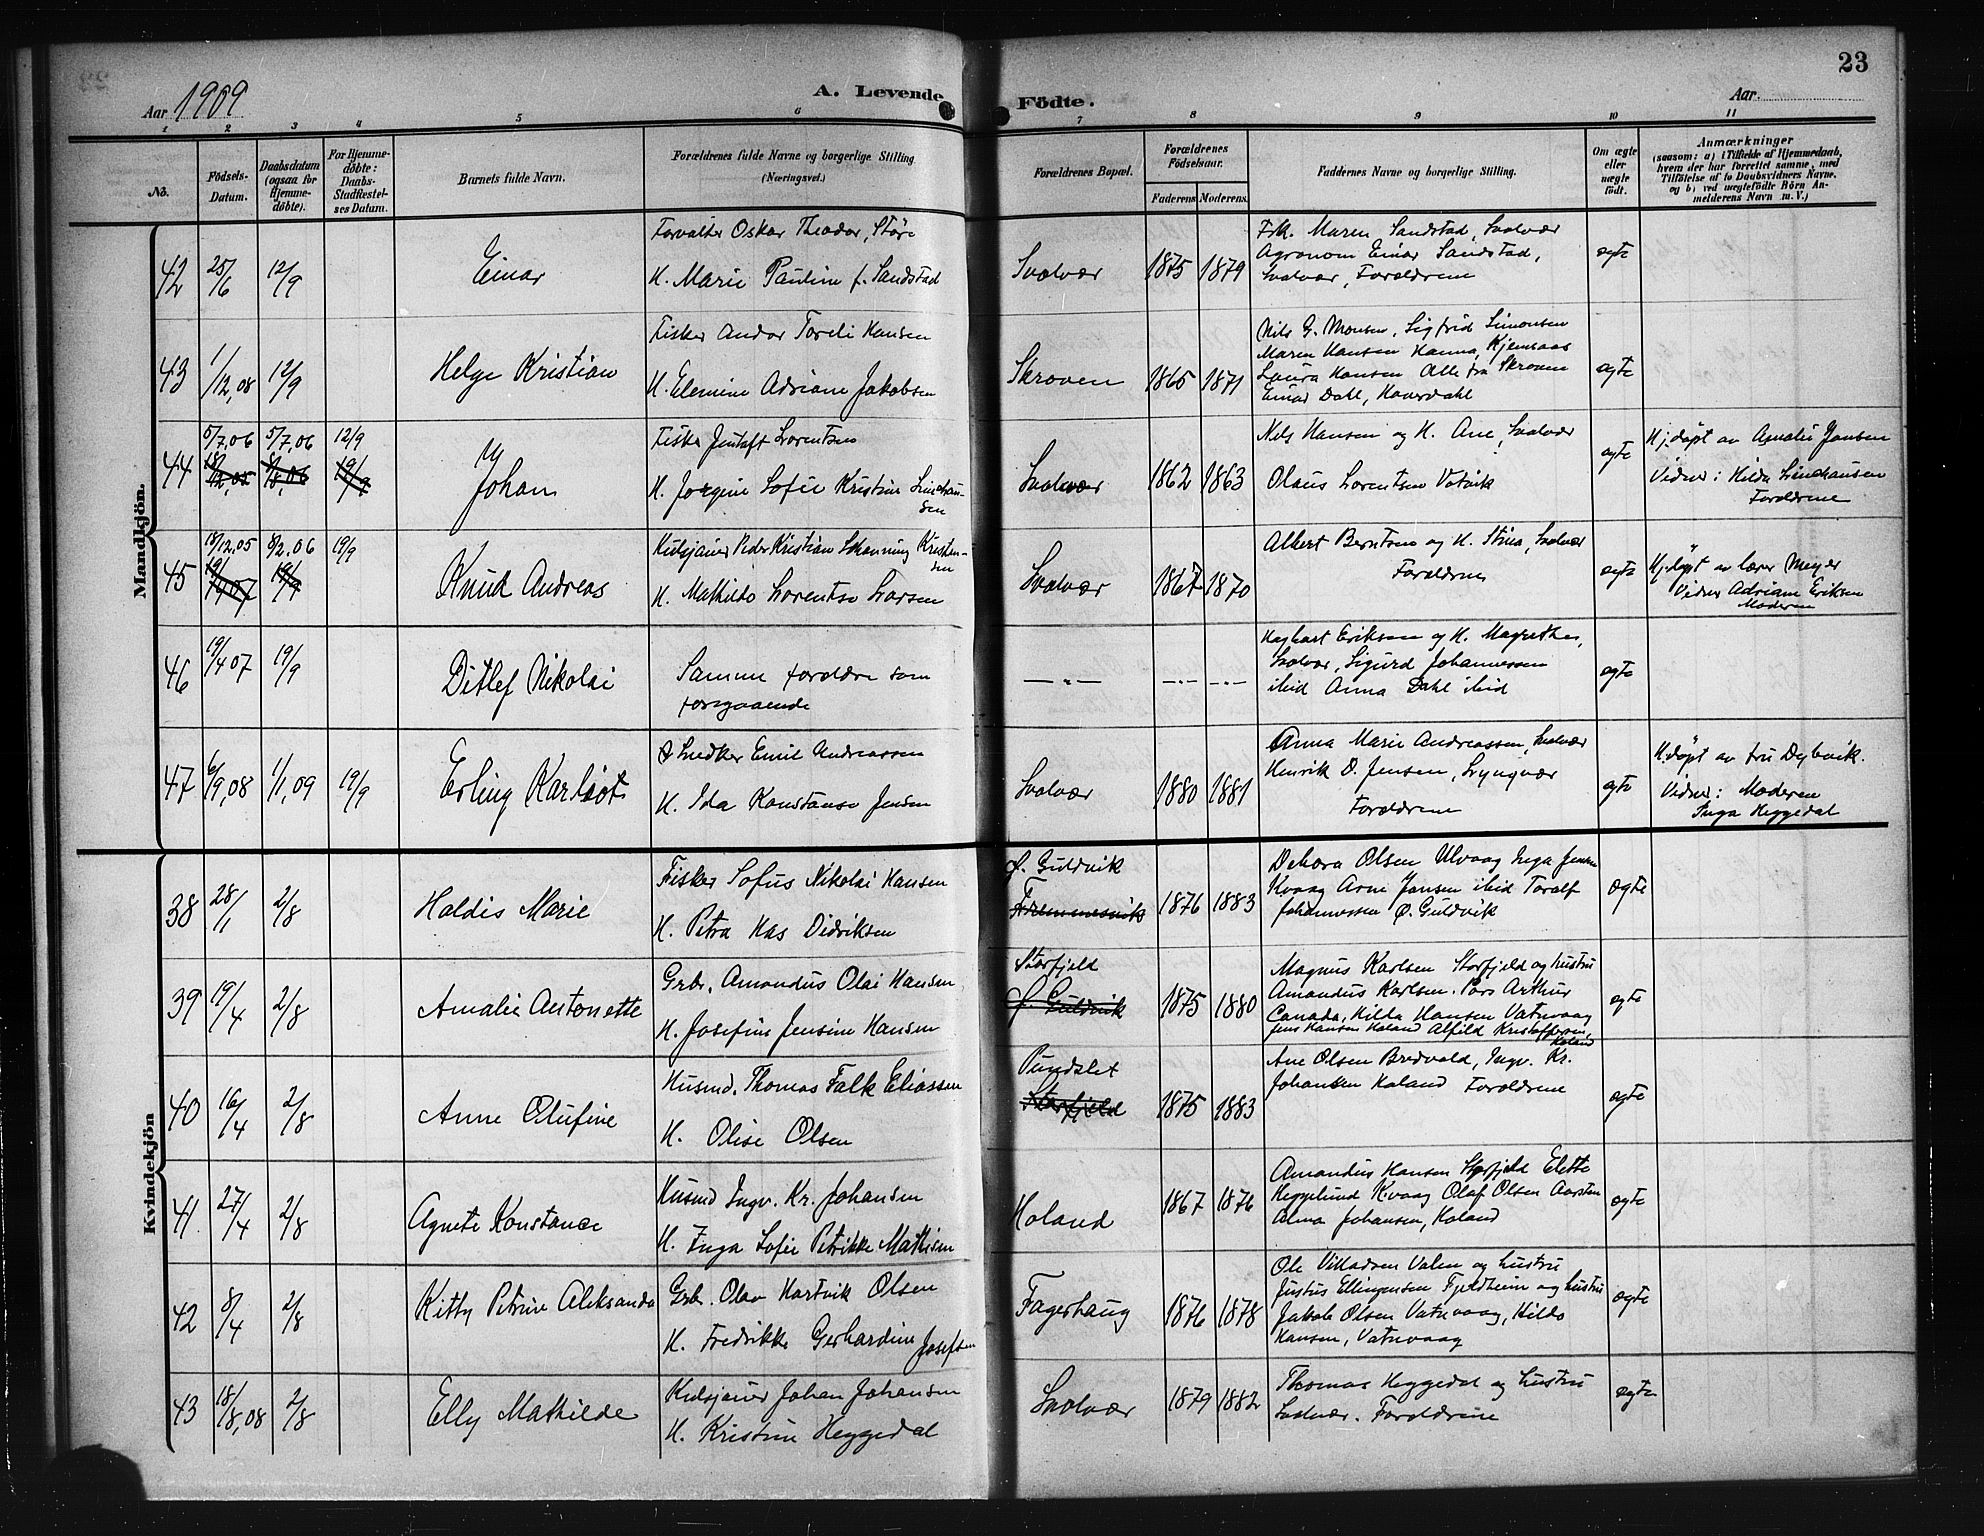 23
Aar 1909
A. Levende Födte.
Aar.
1 2 3 4 5 6 7 8 9 10 11
No.
Födsels-Datum.
Daabsdatum (ogsaa for Hjemme-döbte).
For Hjemme-döbte: Daabs-Stadfæstel-ses Datum.
Barnets fulde Navn.
Forældrenes fulde Navne og borgerlige Stilling. (Næringsvei.)
Forældrenes Bopæl.
Forældrenes Födselsaar.
Faderens Moderens
Faddernes Navne og borgerlige Stilling.
Om ægte eller uægte födt.
Anmærkninger
(saasom: a) i Tilfælde af Hjemmedaab, hvem der har forrettet samme, med Tilföielse af to Daabsvidners Navne, og b) ved uægtefödte Börn An-melderens Navn m. V.)
Mandkjön.
42 25/6 12/9 Einar
Forvalter Oskar Theodor, Störe
H. Marie Pauline f. Sandstad
Svolvær 1875 1879
Frk. Maren Sandstad, Svolvær
Agronom Einar Sandstad,
Svolvær, Forældrene
egte
43 1/12,08 12/9 Helge Kristian
Fisker Andor Toreli Hansen
H. Elemine Adriane Jakobsen
Skroven 1865 1871
Nils G. Monsen, Sigfrid Simonsen
Maren Hansen Hanna, Kjemsaas
Laura Hansen Alle fra Skroven
Einar Dahl, Haverdahl
egte
44 5/7,06 5/7,06 12/9 Johan
Fisker Gustaft Lorentsen
H. Jørgine Sofie Kristine Lindhau-
sen
Svolvær 1862 1863
Nils Hansen og H. Ane, Svolvær
Olaus Lorentsen Votvik
egte
Hj.døpt av Amalie Jensen
Vidner: Hilda Lindhausen
Forældrene
45 18/12,05 8/2,06 19/9 Knud Andreas
Kulsjauer Peder Kristian Johanning Kristen-
sen
H. Mathilde Lorentse Larsen
Svolvær 1867 1870
Albert Berntsen og H. Stina, Svolvær
Forældrene
egte
Hj.døpt av lærer Meyer
Vidner Adriane Eriksen
Moderen
46 19/4 07 19/9 Ditlef Nikolai
Samme forældre som
foregaaende
— „ — — „ — — „ —
Hagbart Eriksen og H. Magrethe,
Svolvær, Sigurd Johannessen
ibid Anna Dahl ibid
egte
47 6/9,08 1/1,09 19/9 Erling Karlsöt
Snedker Emil Andreassen
H. Ida Konstanse Jensen
Svolvær 1880 1881
Anna Marie Andreassen, Svolvær
Henrik D. Jensen, Lyngvær
Forældrene
egte
H.døpt av fru Dybvik.
Vidner: Moderen
Inga Heggedal
Kvindekjön
38 28/1 2/8 Haldis Marie
Fisker Sofus Nikolai Hansen
H. Petra Has Didriksen
Ø. Guldvik
1876 1883
Debora Olsen Ulvaag Inga Jensen
Kvaag Arne Jensen ibid Toralf
Johannessen Ø. Guldvik
egte
39 19/4 2/8 Amalie Antonette
Grbr. Amandus Olai Hansen
H. Josefine Jensine Hansen
Storfjeld
Ø. Guldvik
1875 1880
Magnus Karlsen Storfjeld og hustru
Amandus Karlsen. Pors Arthur
Canada, Hilda Hansen Vatnvaag
Jens Hansen Holand Alfild Kristoffersen,
Holand
egte
40 16/4 2/8 Anne Olufine
Husmd. Thomas Falk Eliassen
H. Olise Olsen
Pundslet
Storfjeld
1875 1883
Ane Olsen Bredvold, Ingv. Kr.
Johansen Holand Forældrene
egte
41. 27/4 2/8 Agnete Konstance
Husmd Ingv. Kr. Johansen
H. Inga Sofie Petrikke Mathisen
Holand 1867 1876
Amandus Hansen Storfjeld Elette
Heggelund Kvaag Olaf Olsen Aarsten
Alma Johansen, Holand
egte
42 8/4 2/8 Kitty Petrine Aleksanda
Grbr. Olav Hartvik Olsen
H. Fredrikke Gerhardine Josefsen
Fagerhaug 1876 1878
Ole Villadsen Valen og hustru
Justus Ellingsensen Fjeldheim og hustru
Jakob Olsen Vatnvaag, Hilda
Hansen, Vatnvaag
egte
43 18/8,08 2/8 Elly Mathilde
Kulsjauer Johan Johansen
H. Kristine Heggedal
Svolvær 1879 1882
Thomas Heggedal og hustru
Svolvær. Forældrene
egte